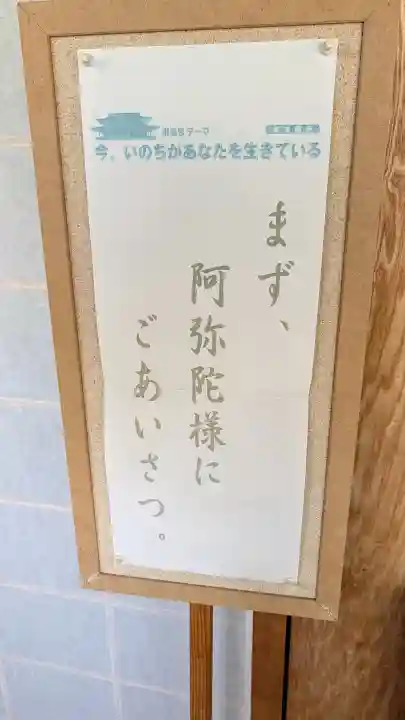 今、いのちがあなたを生きている
まず、
阿弥陀様に
ごあいさつ。